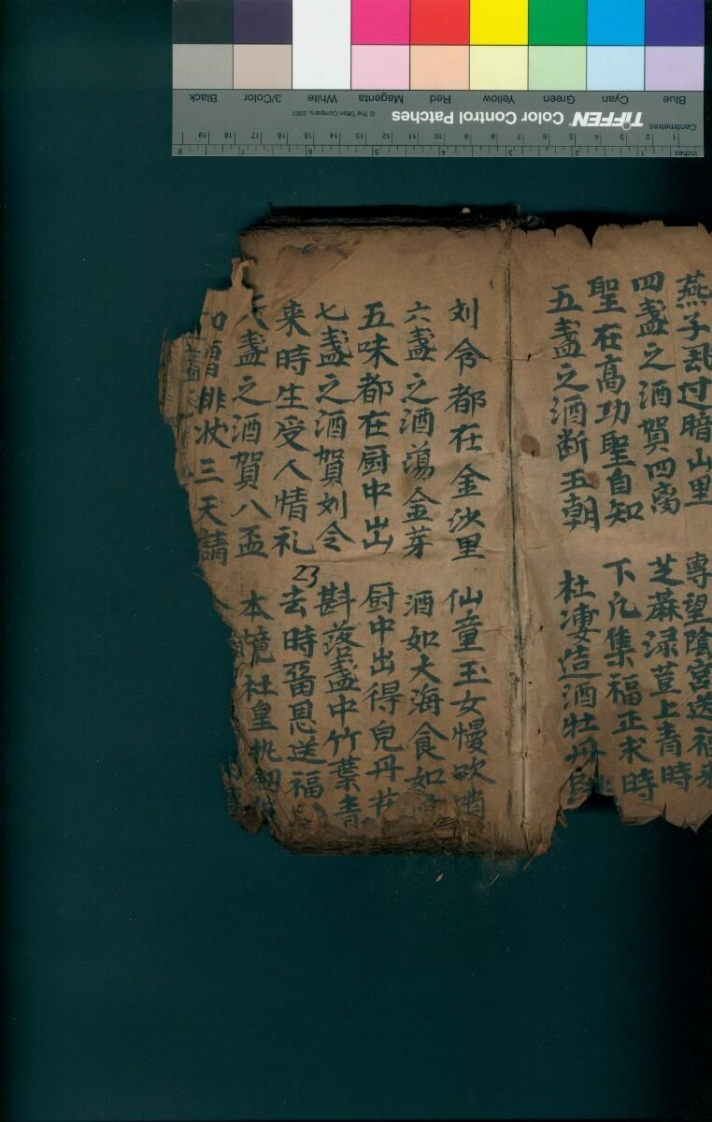 Blue Cyan Green Yellow Red Magenta White 3/Color Black
TIFFEN Color Control Patches © The Tiffen Company, 2007
Centimetres
Inches
燕子乱过暗山里 專望陰宫送福来
四盞之酒賀四离 芝蔴渌荳上青時
聖在高功聖自知 下凡集福正求時
五盞之酒断五朝 杜凄造酒牡丹
刘令都在金沙里 仙童玉女慢歌
六盞之酒蕩金芽 酒如大海食如
五味都在厨中出 厨中出得兒丹
七盞之酒賀刘令 斟落盞中竹葉青
来時生受人情礼 去時畱恩送福
八盞之酒賀八盃 本境社皇
排状三天請
23